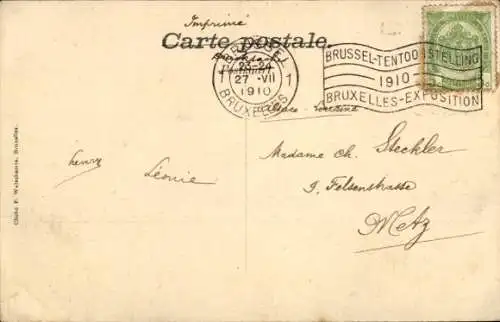 Imprimé
Carte postale.
BRUSSEL
23-24
27 VII
1910
BRUXELLES
1 1
BRUSSEL-TENTOONSTELLING
1910
BRUXELLES-EXPOSITION
Alsace-Lorraine
Madame Ch. Steckler
9. Felsenstrasse
Metz
henry
Léonie
Cliché F. Walschaerts, Bruxelles.